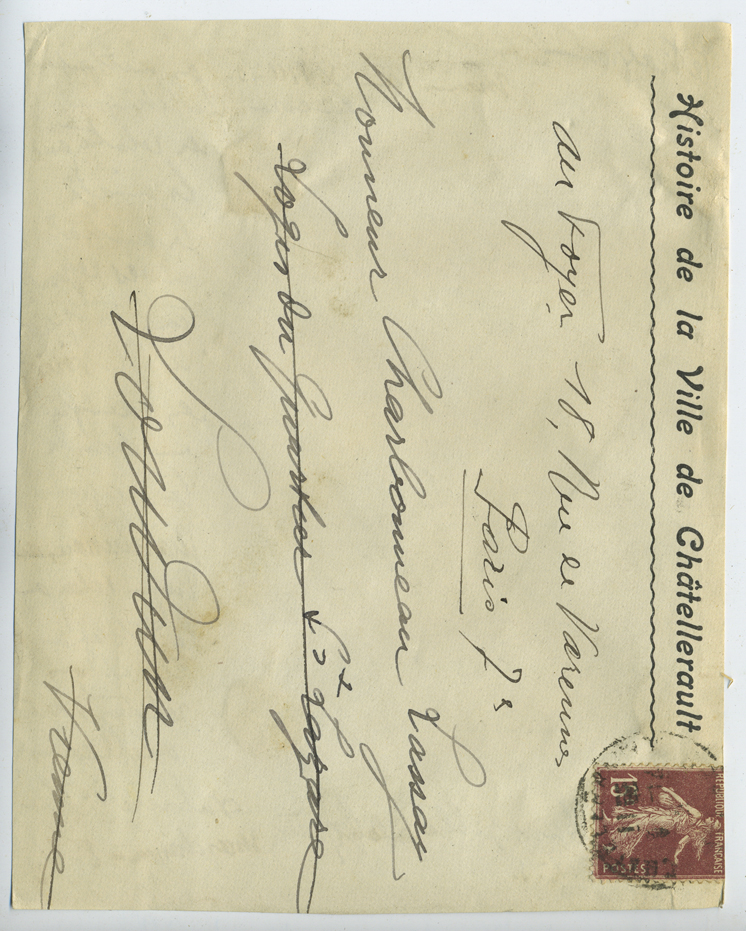 Histoire de la Ville de Châtellerault
au Foyer 18, Rue de Varennes
Paris 7e
Monsieur Charbonneau Lassay
Logis du Quartier St Lazare
LOUDUN
Vienne
RÉPUBLIQUE FRANÇAISE
15c
POSTES